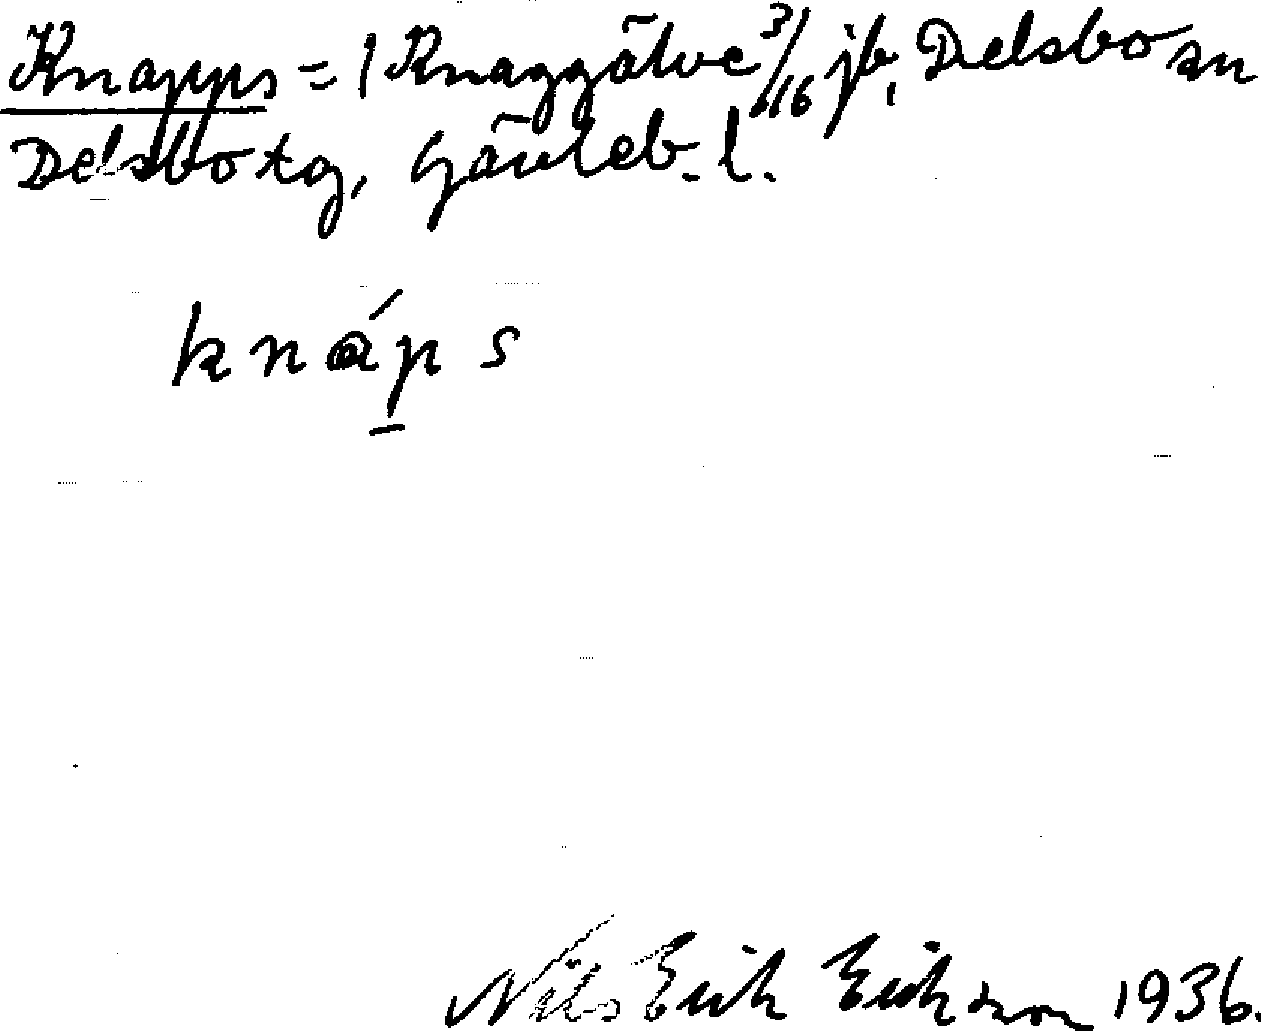 Knapps = 1 Knaggälve 3/616 jb, Delsbo sn
Delsbo tg, Gävleb. l.
knáp̠s
Nils Erik Erikson 1936.